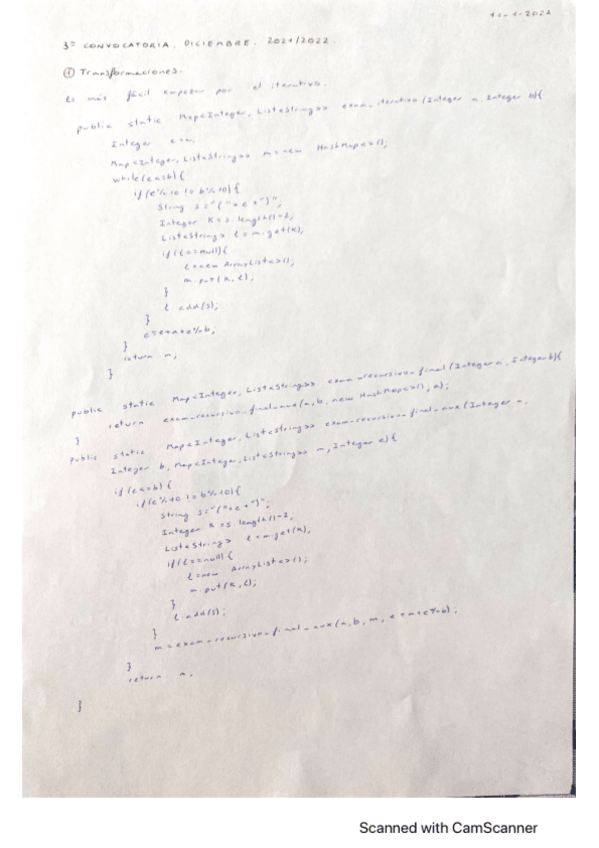 11-1-2022
3º CONVOCATORIA. DICIEMBRE. 2021/2022.
① Transformaciones.
Es más fácil empezar por el iterativo.
public static Map<Integer, List<String>> exam_iterativo (Integer a, Integer b){
Integer e=a;
Map<Integer, List<String>> m=new HashMap<>();
while(e<=b){
if(e%10 != b%10){
String s="("+e+")";
Integer K=s.length()-2;
List<String> l=m.get(K);
if(l==null){
l=new ArrayList<>();
m.put(K,l);
}
l.add(s);
}
e=e+a+e%b;
}
return m;
}
public static Map<Integer, List<String>> exam_recursivo_final (Integer a, Integer b){
return exam_recursivo_final_aux(a,b, new HashMap<>(), a);
}
public static Map<Integer, List<String>> exam_recursivo_final_aux (Integer a,
Integer b, Map<Integer, List<String>> m, Integer e){
if(e<=b){
if(e%10 != b%10){
String s="("+e+")";
Integer K=s.length()-2;
List<String> l=m.get(K);
if(l==null){
l=new ArrayList<>();
m.put(K,l);
}
l.add(s);
}
m=exam_recursivo_final_aux(a,b,m,e+a+e%b);
}
return m;
}
Scanned with CamScanner